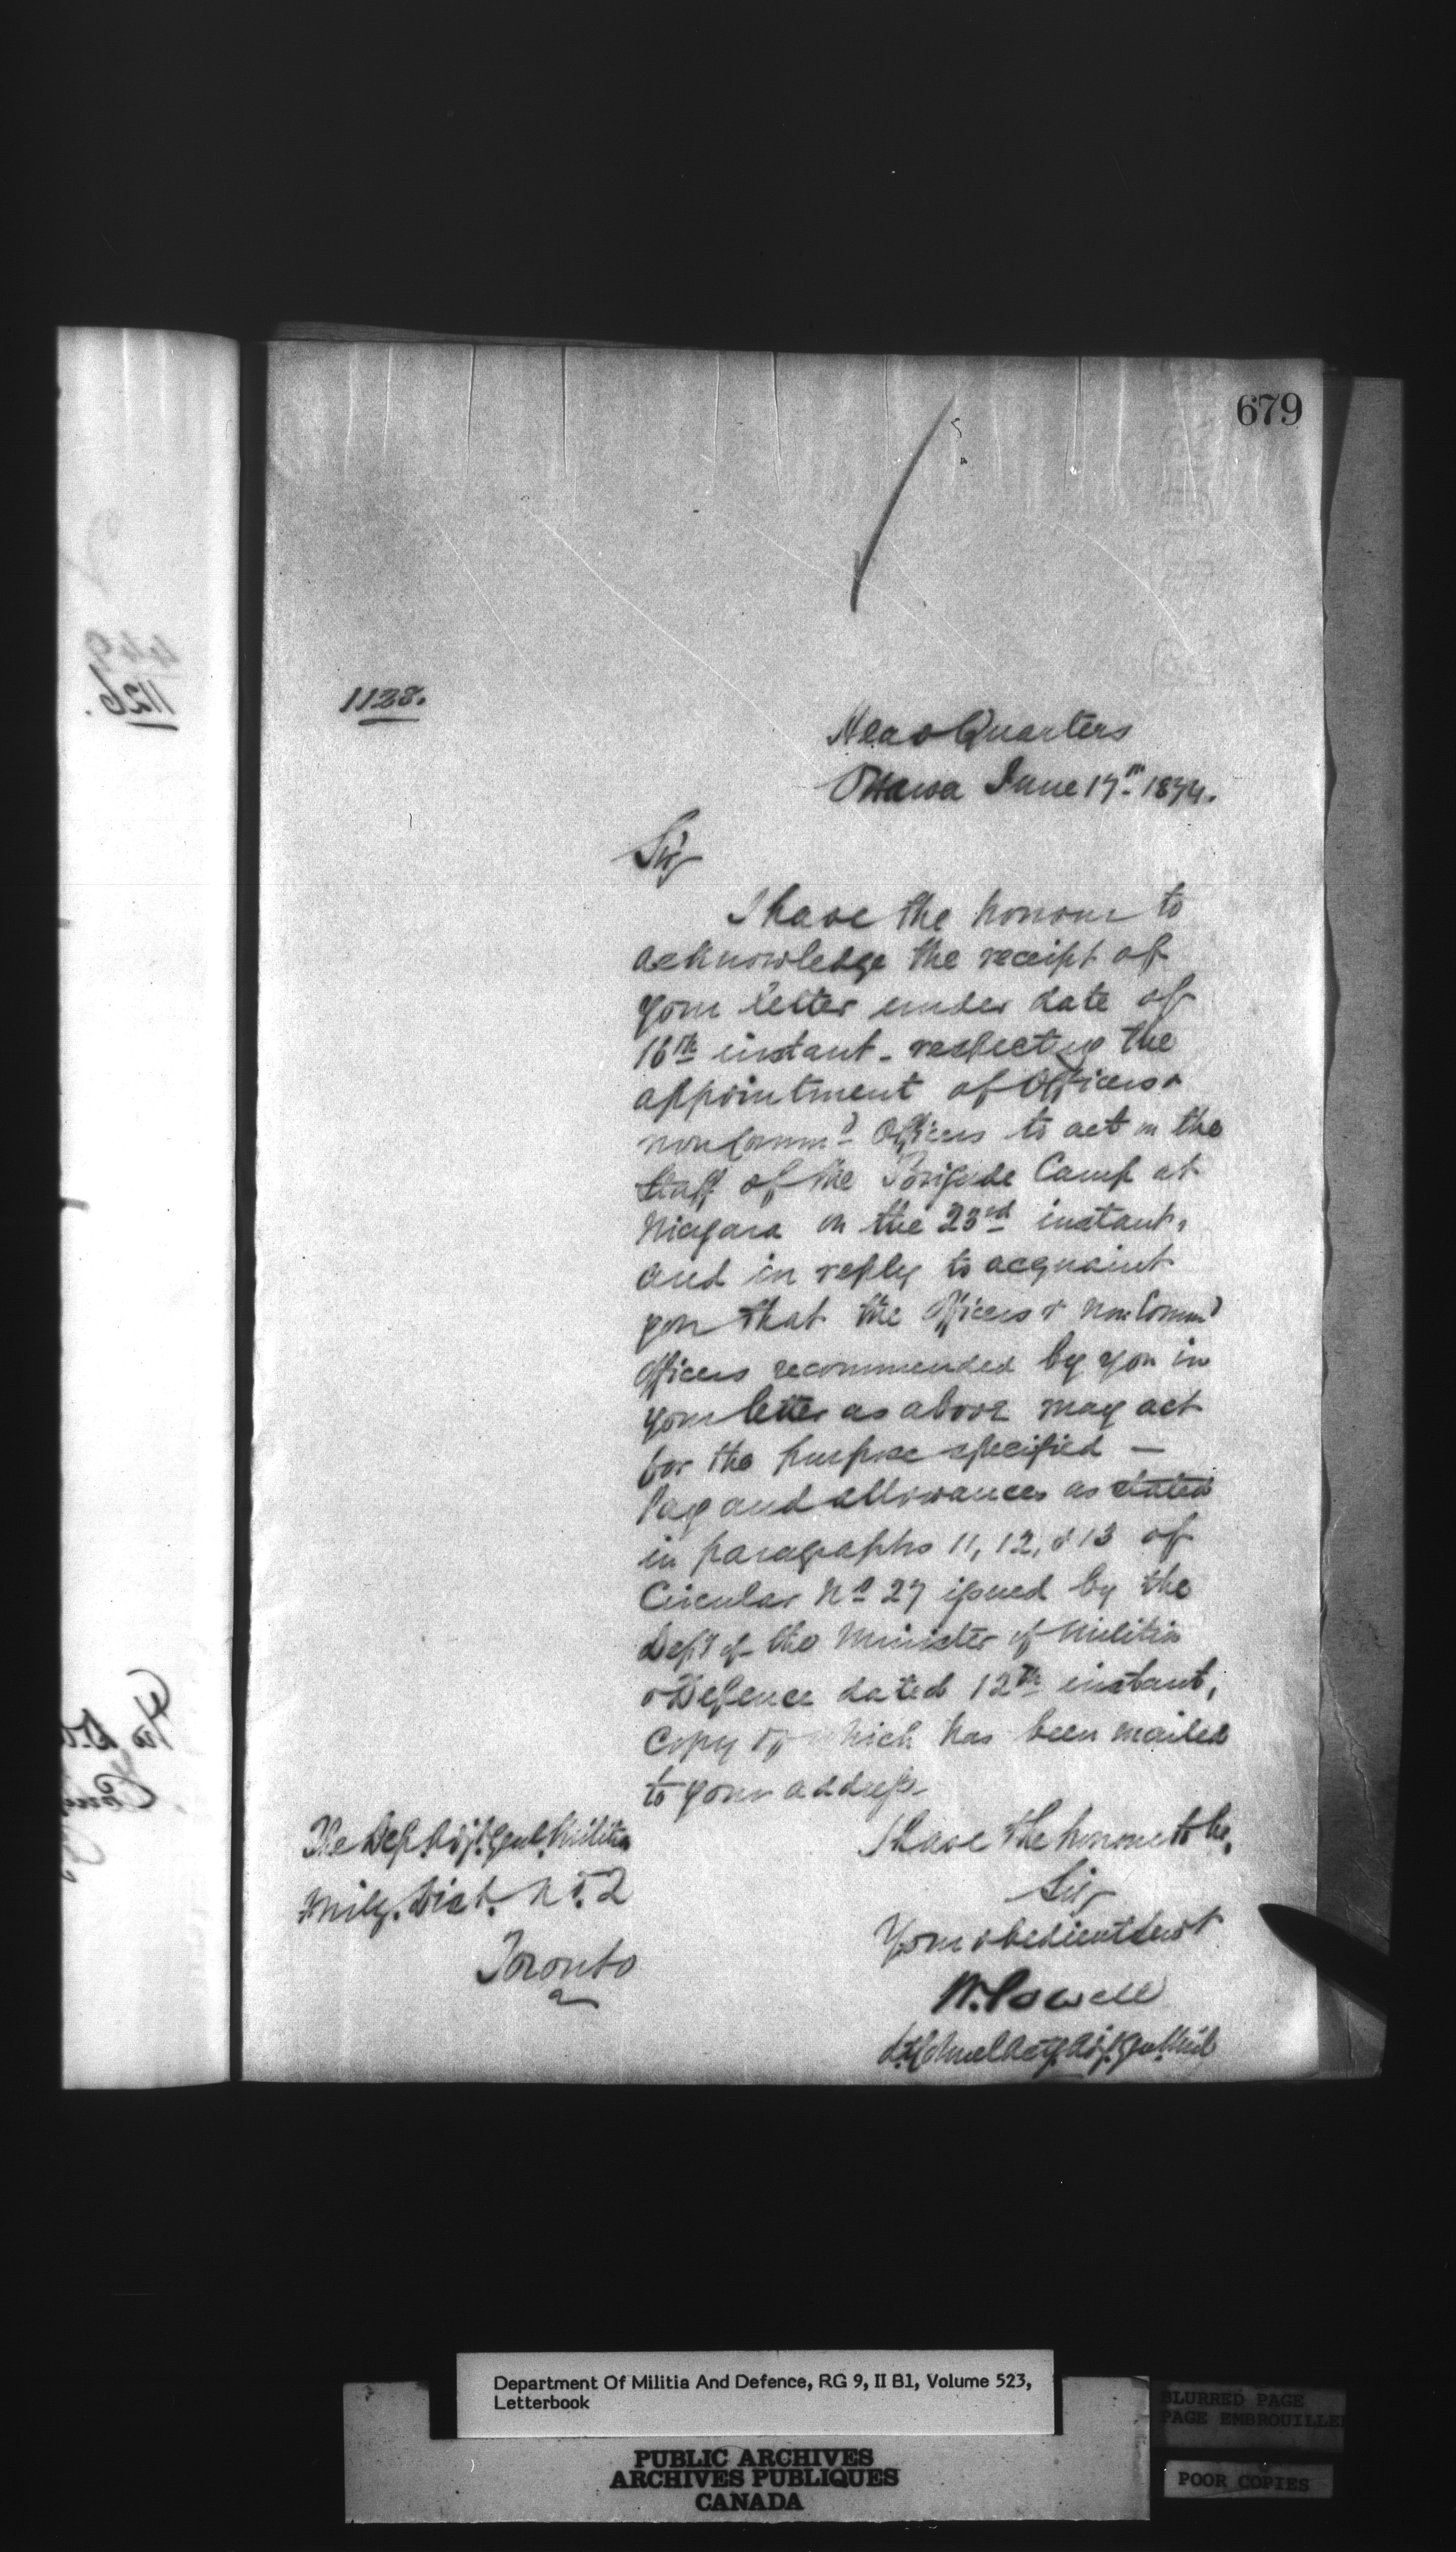 679
1128.
Head Quarters
Ottawa June 17th 1874.
Sir,
I have the honour to
acknowledge the receipt of
your letter under date of
16th instant - respecting the
appointment of Officers &
non Comm'd Officers to act on the
Staff of the Brigade Camp at
Niagara on the 23rd instant,
and in reply to acquaint
you that the Officers & Non Comm'd
Officers recommended by you in
your letter as above may act
for the purpose specified —
Pay and allowances as stated
in paragraphs 11, 12, & 13 of
Circular No 27 issued by the
Dept of the Minister of Militia
& Defence dated 12th instant,
Copy of which has been mailed
to your address.
I have the honour to be,
Sir,
Your obedient Servt
W. Powell
Lt. Colonel Actg. Adjt. Genl. Mil
The Dep. Adjt. Genl. Militia
Mily. Dist. No. 2
Toronto
449
1126.
Department Of Militia And Defence, RG 9, II B1, Volume 523,
Letterbook
PUBLIC ARCHIVES
ARCHIVES PUBLIQUES
CANADA
BLURRED PAGE
PAGE EMBROUILLEE
POOR COPIES